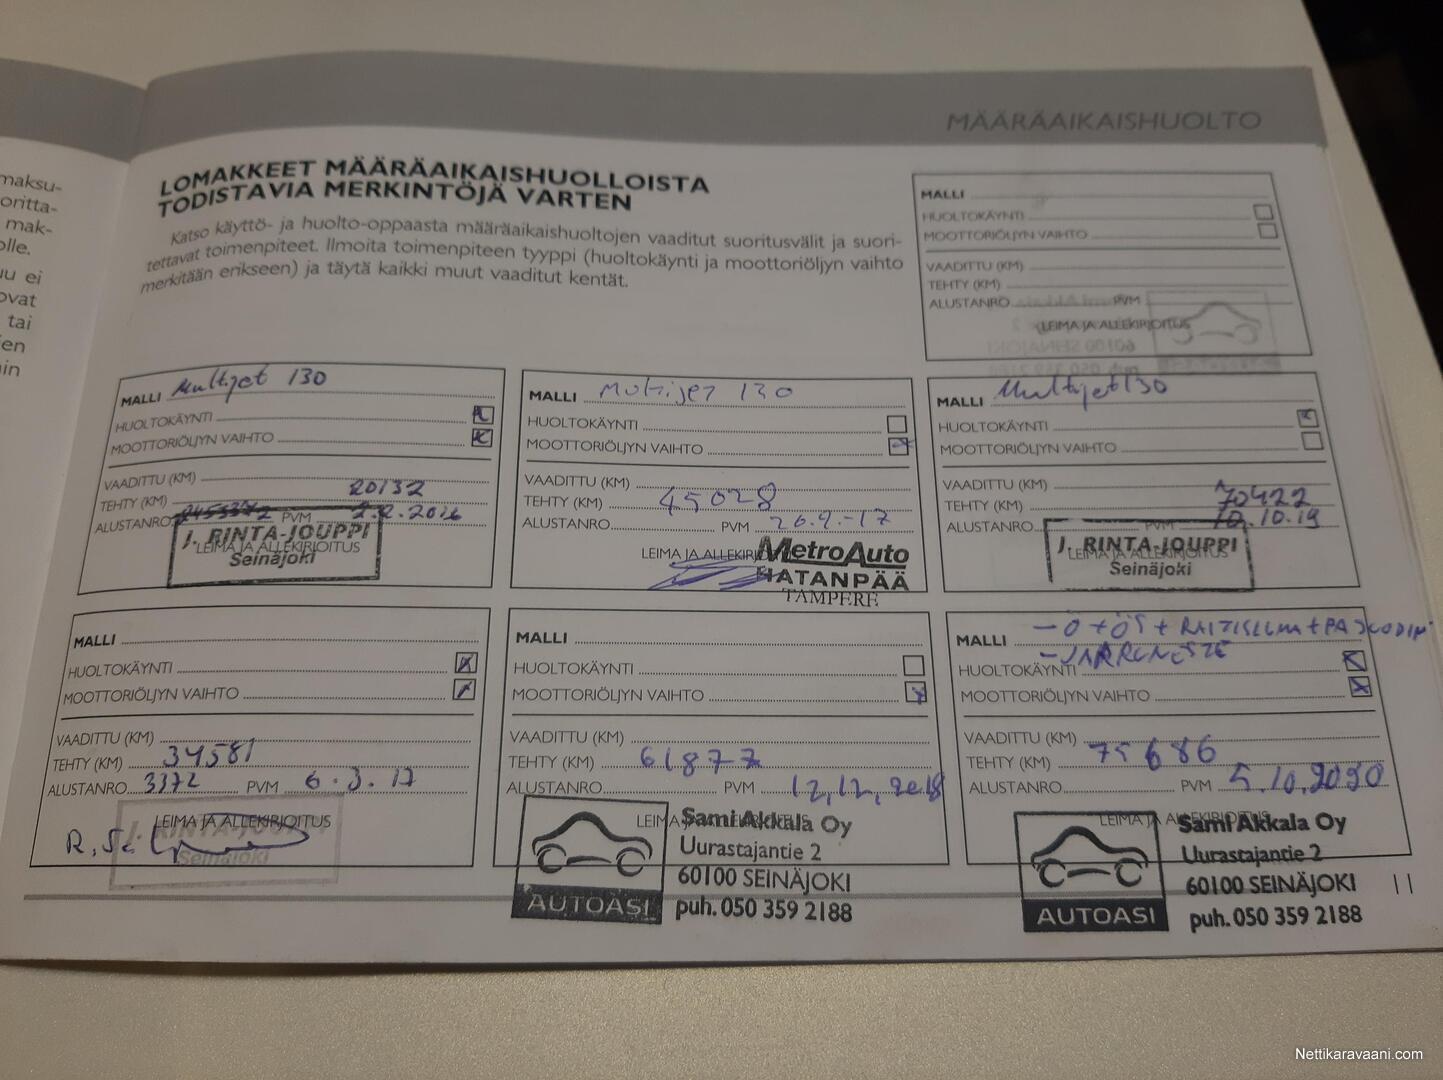 MÄÄRÄAIKAISHUOLTO
maksu-
oritta-
mak-
olle.
uu ei
ovat
tai
en
in
LOMAKKEET MÄÄRÄAIKAISHUOLLOISTA
TODISTAVIA MERKINTÖJÄ VARTEN
Katso käyttö- ja huolto-oppaasta määräaikaishuoltojen vaaditut suoritusvälit ja suori-
tettavat toimenpiteet. Ilmoita toimenpiteen tyyppi (huoltokäynti ja moottoriöljyn vaihto
merkitään erikseen) ja täytä kaikki muut vaaditut kentät.
MALLI
HUOLTOKÄYNTI
MOOTTORIÖLJYN VAIHTO
VAADITTU (KM)
TEHTY (KM)
ALUSTANRO PVM
LEIMA JA ALLEKIRJOITUS
MALLI Multijet 130
HUOLTOKÄYNTI
MOOTTORIÖLJYN VAIHTO
VAADITTU (KM)
TEHTY (KM) 20132
ALUSTANRO PVM 2.2.2016
LEIMA JA ALLEKIRJOITUS
J. RINTA-JOUPPI
Seinäjoki
MALLI Multijet 130
HUOLTOKÄYNTI
MOOTTORIÖLJYN VAIHTO
VAADITTU (KM)
TEHTY (KM) 45028
ALUSTANRO PVM 26.9.-17
LEIMA JA ALLEKIRJ
MetroAuto
HATANPÄÄ
TAMPERE
MALLI Multijet 130
HUOLTOKÄYNTI
MOOTTORIÖLJYN VAIHTO
VAADITTU (KM)
TEHTY (KM) 70422
ALUSTANRO PVM 10.10.19
LEIMA JA ALLEKIRJOITUS
J. RINTA-JOUPPI
Seinäjoki
MALLI
HUOLTOKÄYNTI
MOOTTORIÖLJYN VAIHTO
VAADITTU (KM)
TEHTY (KM) 34581
ALUSTANRO 3372 PVM 6.3.17
LEIMA JA ALLEKIRJOITUS
J. RINTA-JOUPPI
Seinäjoki
MALLI
HUOLTOKÄYNTI
MOOTTORIÖLJYN VAIHTO
VAADITTU (KM)
TEHTY (KM) 61877
ALUSTANRO PVM 12,12,2018
Sami Akkala Oy
Uurastajantie 2
60100 SEINÄJOKI
puh. 050 359 2188
AUTOASI
MALLI - Ö + ÖS + RAITISILMA +
- JARRUNESTE
HUOLTOKÄYNTI
MOOTTORIÖLJYN VAIHTO
VAADITTU (KM)
TEHTY (KM) 75686
ALUSTANRO PVM 5.10.2020
Sami Akkala Oy
Uurastajantie 2
60100 SEINÄJOKI
puh. 050 359 2188
AUTOASI
11
Nettikaravaani.com